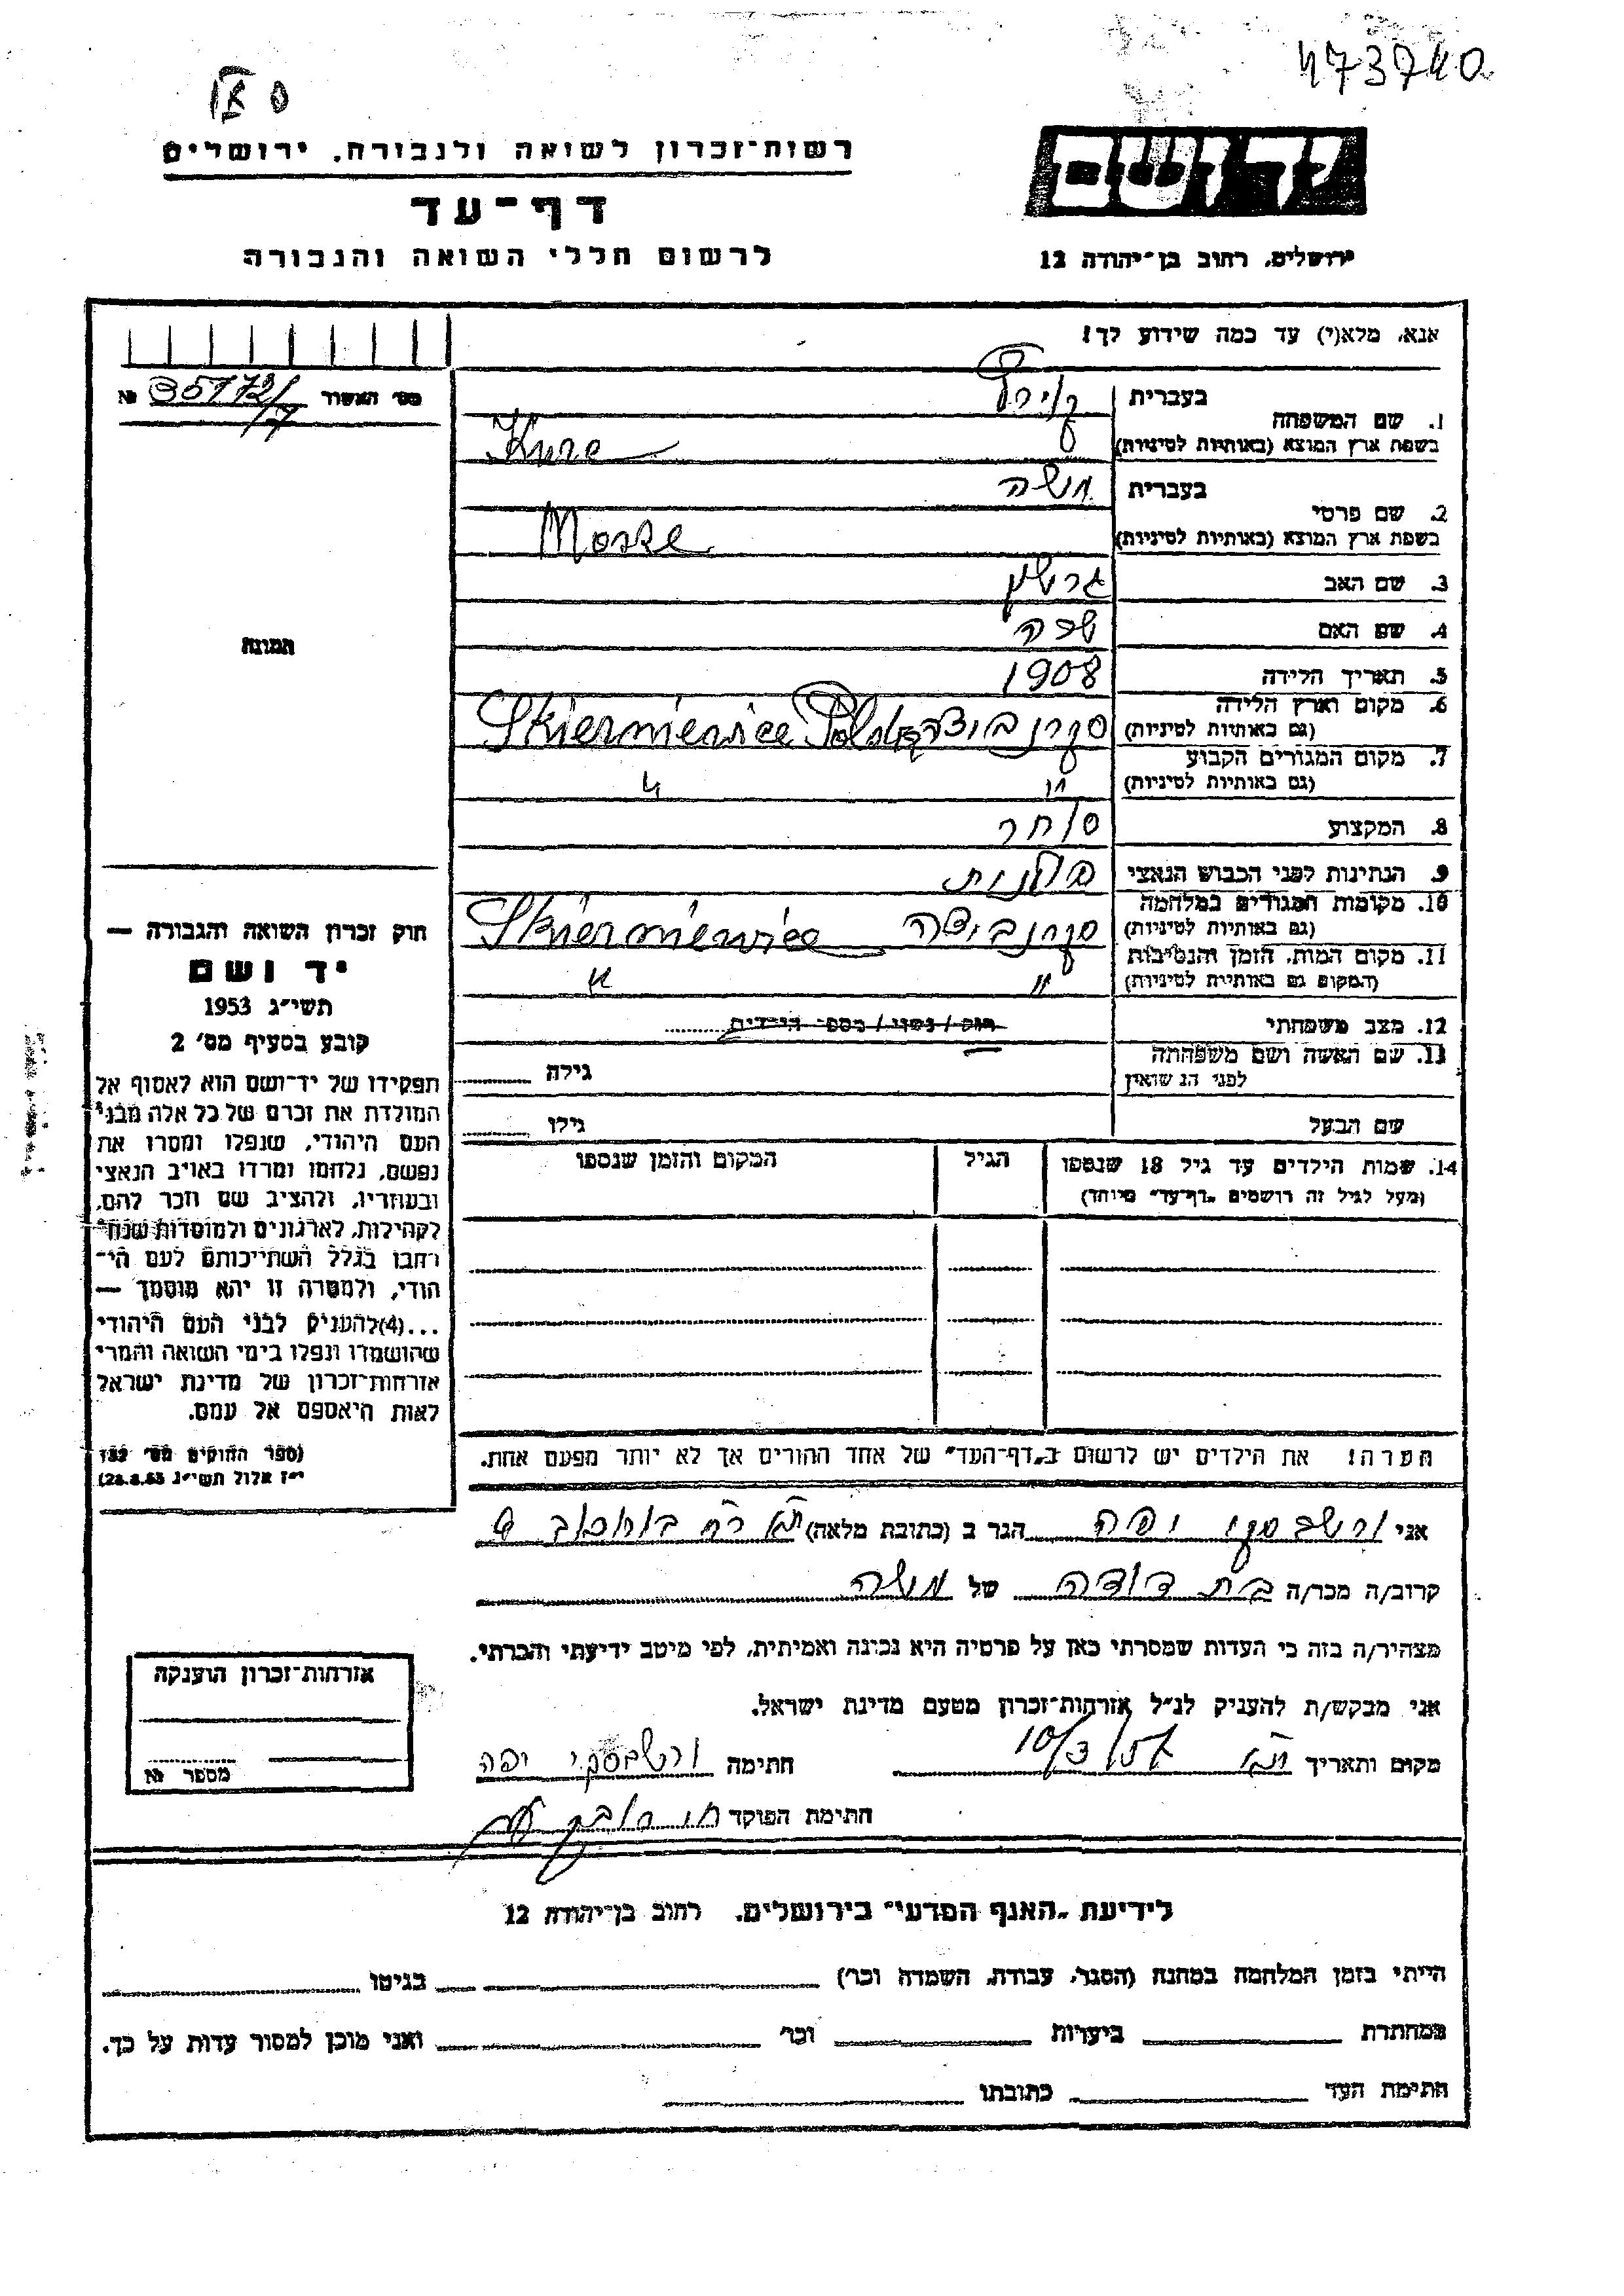 473740
רשות־זכרון לשואה ולגבורה, ירושלים
דף־עד
לרשום חללי השואה והגבורה
יד ושם
ירושלים, רחוב בן־יהודה 12
אנא, מלא(י) עד כמה שידוע לך!
מס׳ האשור № 35172/7
1. שם המשפחה
בעברית
בשפת ארץ המוצא (באותיות לטיניות)
2. שם פרטי
בעברית משה
בשפת ארץ המוצא (באותיות לטיניות) Mosze
3. שם האב גרשון
4. שם האם שרה
5. תאריך הלידה 1908
6. מקום וארץ הלידה
(גם באותיות לטיניות) Skierniewice Polska
7. מקום המגורים הקבוע
(גם באותיות לטיניות) " "
8. המקצוע סוחר
9. הנתינות לפני הכבוש הנאצי פולנית
10. מקומות המגורים במלחמה
(גם באותיות לטיניות) Skierniewice
11. מקום המות, הזמן והנסיבות
(המקום גם באותיות לטיניות) " "
12. מצב משפחתי רווק/נשוי/מספר הילדים
13. שם האשה ושם משפחתה
לפני הנשואין
גילה
שם הבעל
גילו
14. שמות הילדים עד גיל 18 שנספו
(מעל לגיל זה רושמים „דף־עד" מיוחד)
הגיל
המקום והזמן שנספו
תמונה
חוק זכרון השואה והגבורה —
יד ושם
תשי״ג 1953
קובע בסעיף מס׳ 2
תפקידו של יד־ושם הוא לאסוף אל
המולדת את זכרם של כל אלה מבני
העם היהודי, שנפלו ומסרו את
נפשם, נלחמו ומרדו באויב הנאצי
ובעוזריו, ולהציב שם וזכר להם,
לקהילות, לארגונים ולמוסדות שנח־
רבו בגלל השתייכותם לעם הי־
הודי, ולמטרה זו יהא מוסמך —
...(4) להעניק לבני העם היהודי
שהושמדו ונפלו בימי השואה והמרי
אזרחות־זכרון של מדינת ישראל
לאות היאספם אל עמם.
(ספר החוקים מס׳ 132
י״ז אלול תשי״ג 28.8.53)
הערה! את הילדים יש לרשום ב„דף־העד" של אחד ההורים אך לא יותר מפעם אחת.
אני ורשבסקי יפה הגר ב (כתובת מלאה)
קרוב/ה מכר/ה בת דודה של משה
מצהיר/ה בזה כי העדות שמסרתי כאן על פרטיה היא נכונה ואמיתית, לפי מיטב ידיעתי והכרתי.
אני מבקש/ת להעניק לנ״ל אזרחות־זכרון מטעם מדינת ישראל.
מקום ותאריך 10/3/57 חתימה ורשבסקי יפה
חתימת הפוקד
אזרחות־זכרון הוענקה
מספר №
לידיעת „האגף המדעי" בירושלים, רחוב בן־יהודה 12
הייתי בזמן המלחמה במחנה (הסגר, עבודה, השמדה וכו׳) בגיטו
במחתרת ביערות וכו׳ ואני מוכן למסור עדות על כך.
חתימת העד כתובתו